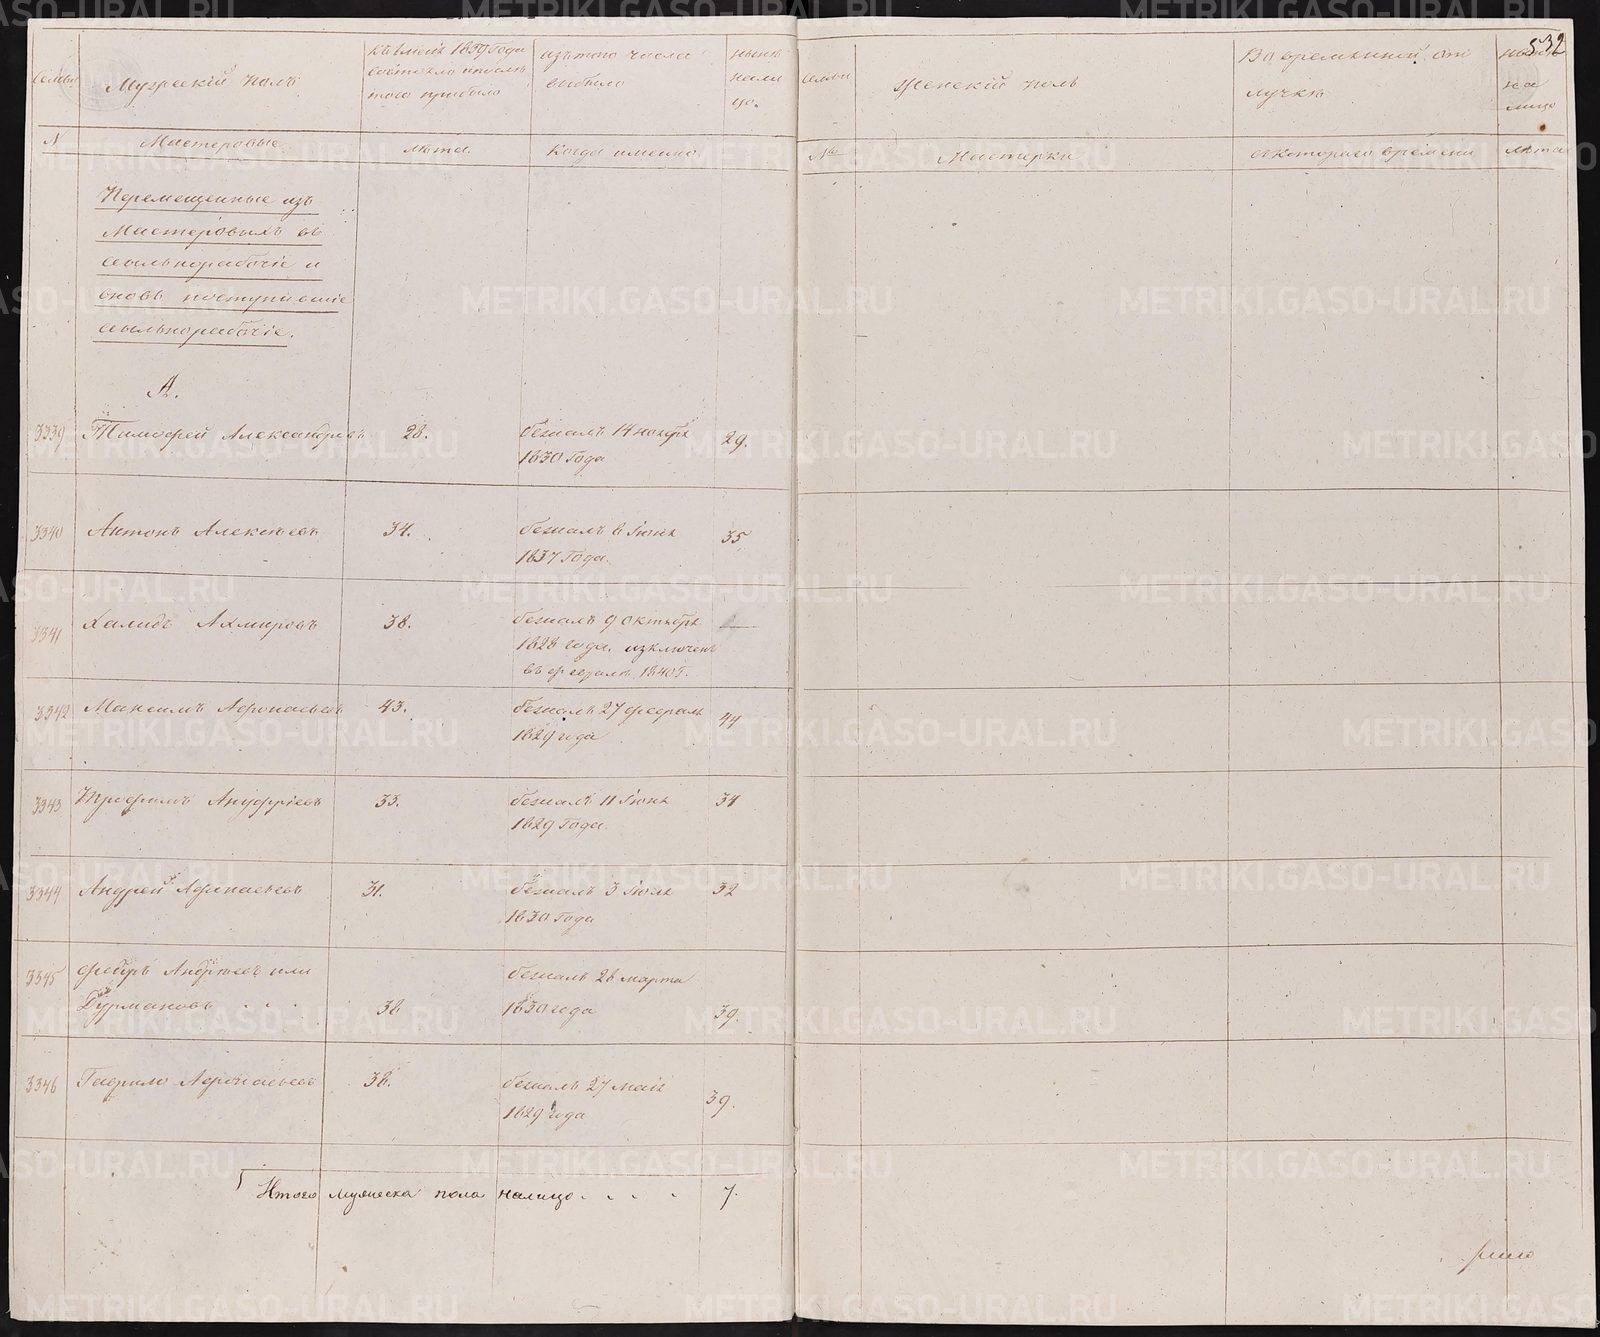 532
Семьи
Мужескій полъ
къ 1839 года
состояло и послѣ
того прибыло
изъ того числа
выбыло
нынѣ
нали
цо.
Семьи
Женскій полъ
Во временной от
лучкѣ
нынѣ
на
лицо
N
Мастеровые
лѣта.
Когда именно.
№
Мастерки
съ котораго времени
лѣта
Перемещенные изъ
Мастеровыхъ въ
ссыльнорабочіе и
вновь поступившіе
ссыльнорабочіе.
А.
3339 Тимофей Александровъ 28. бежалъ 14 ноября 29.
1830 Года
3340 Антонъ Алексѣевъ 34. бежалъ 8 Іюня 35
1837 Года.
3341 Халидъ Ахмировъ 38. бежалъ 9 октября —
1828 года. изключенъ
въ феврале 1840 г.
3342 Максимъ Афонасьевъ 43. бежалъ 27 февраля 44
1829 года
3343 Трофимъ Ануфріевъ 33. бежалъ 11 Іюня 34
1829 Года.
3344 Андрей Афонасьевъ 31. бежалъ 3 Іюля 32
1830 Года
3345 Федоръ Андреевъ или бежалъ 28 марта
Дурмановъ . . . 38 1830 года 39.
3346 Гаврило Афонасьевъ 38. бежалъ 27 маія 39.
1829 года
Итого мужеска пола налицо . . . . 7.
METRIKI.GASO-URAL.RU